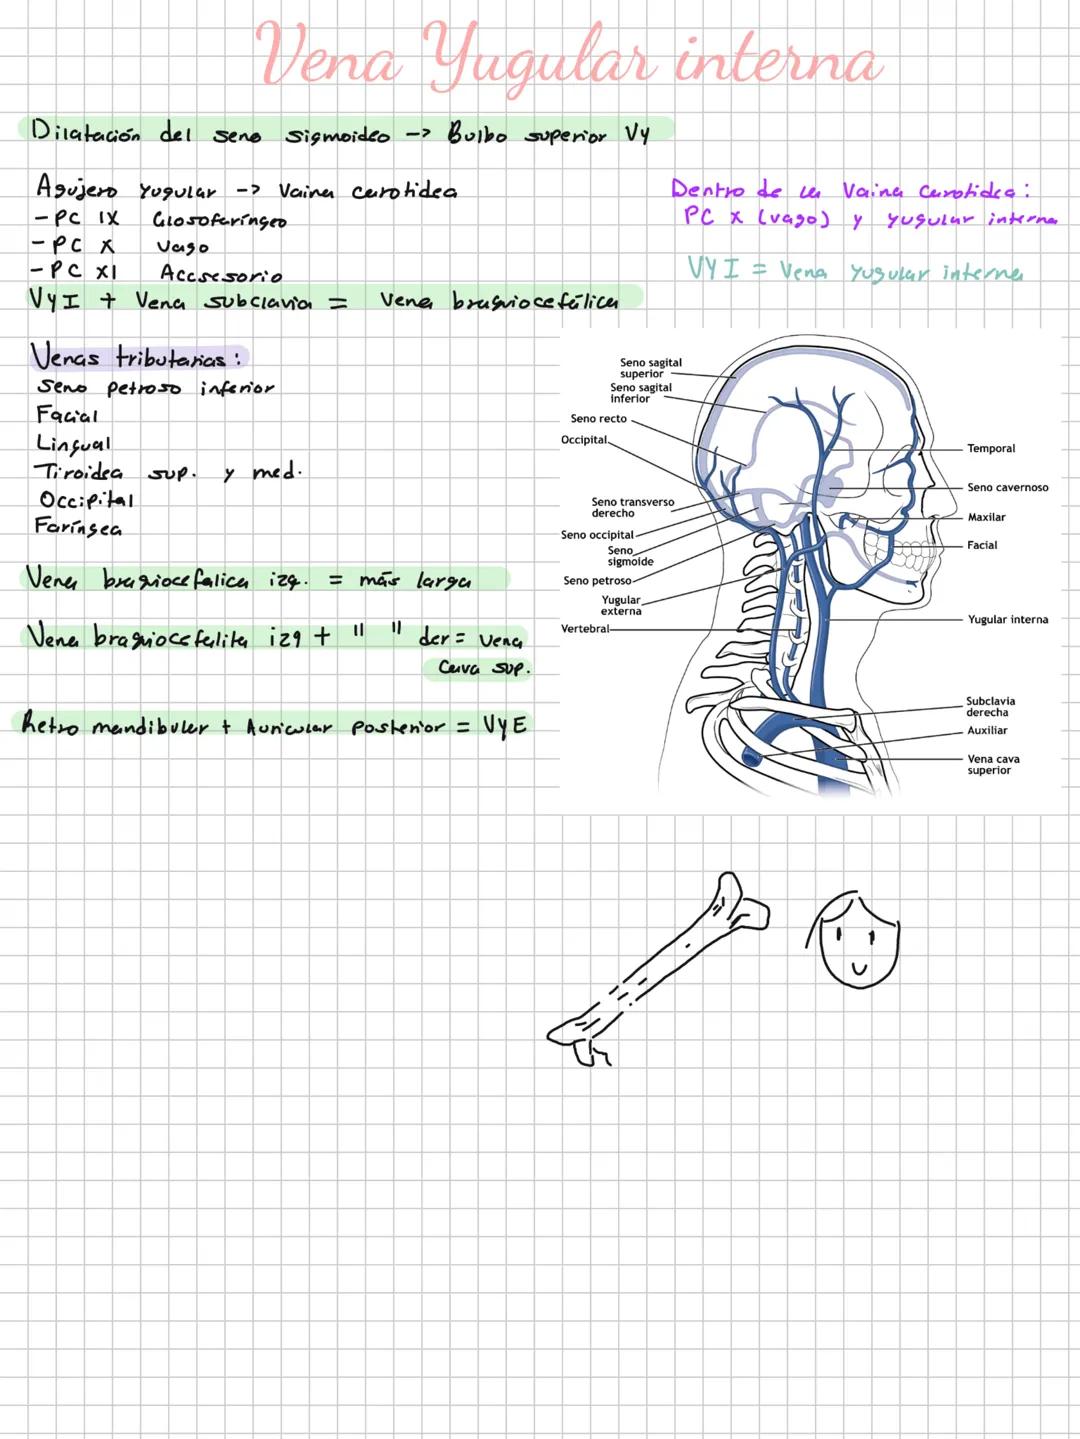 Vena Yugular interna
Dilatación del seno sigmoideo -> Bulbo superior Vy
Agujero yugular -> Vaina carotidea
- PC IX Glosofaríngeo
- PC X Vago
- PC XI Accsesorio
VyI + Vena subclavia = Vena braquiocefálica
Dentro de la Vaina Carotidea:
PC X (vago) y yugular interna
VYI = Vena yugular interna
Venas tributarias:
Seno petroso inferior
Facial
Lingual
Tiroidea sup. y med.
Occipital
Faríngea
Vena braquiocefalica izq. = más larga
Vena braquiocefalita izq + " " der = vena
Cava sup.
Retro mandibular + Auricular posterior = VyE
Seno sagital
superior
Seno sagital
inferior
Seno recto
Occipital
Seno transverso
derecho
Seno occipital
Seno
sigmoide
Seno petroso
Yugular
externa
Vertebral
Temporal
Seno cavernoso
Maxilar
Facial
Yugular interna
Subclavia
derecha
Auxiliar
Vena cava
superior